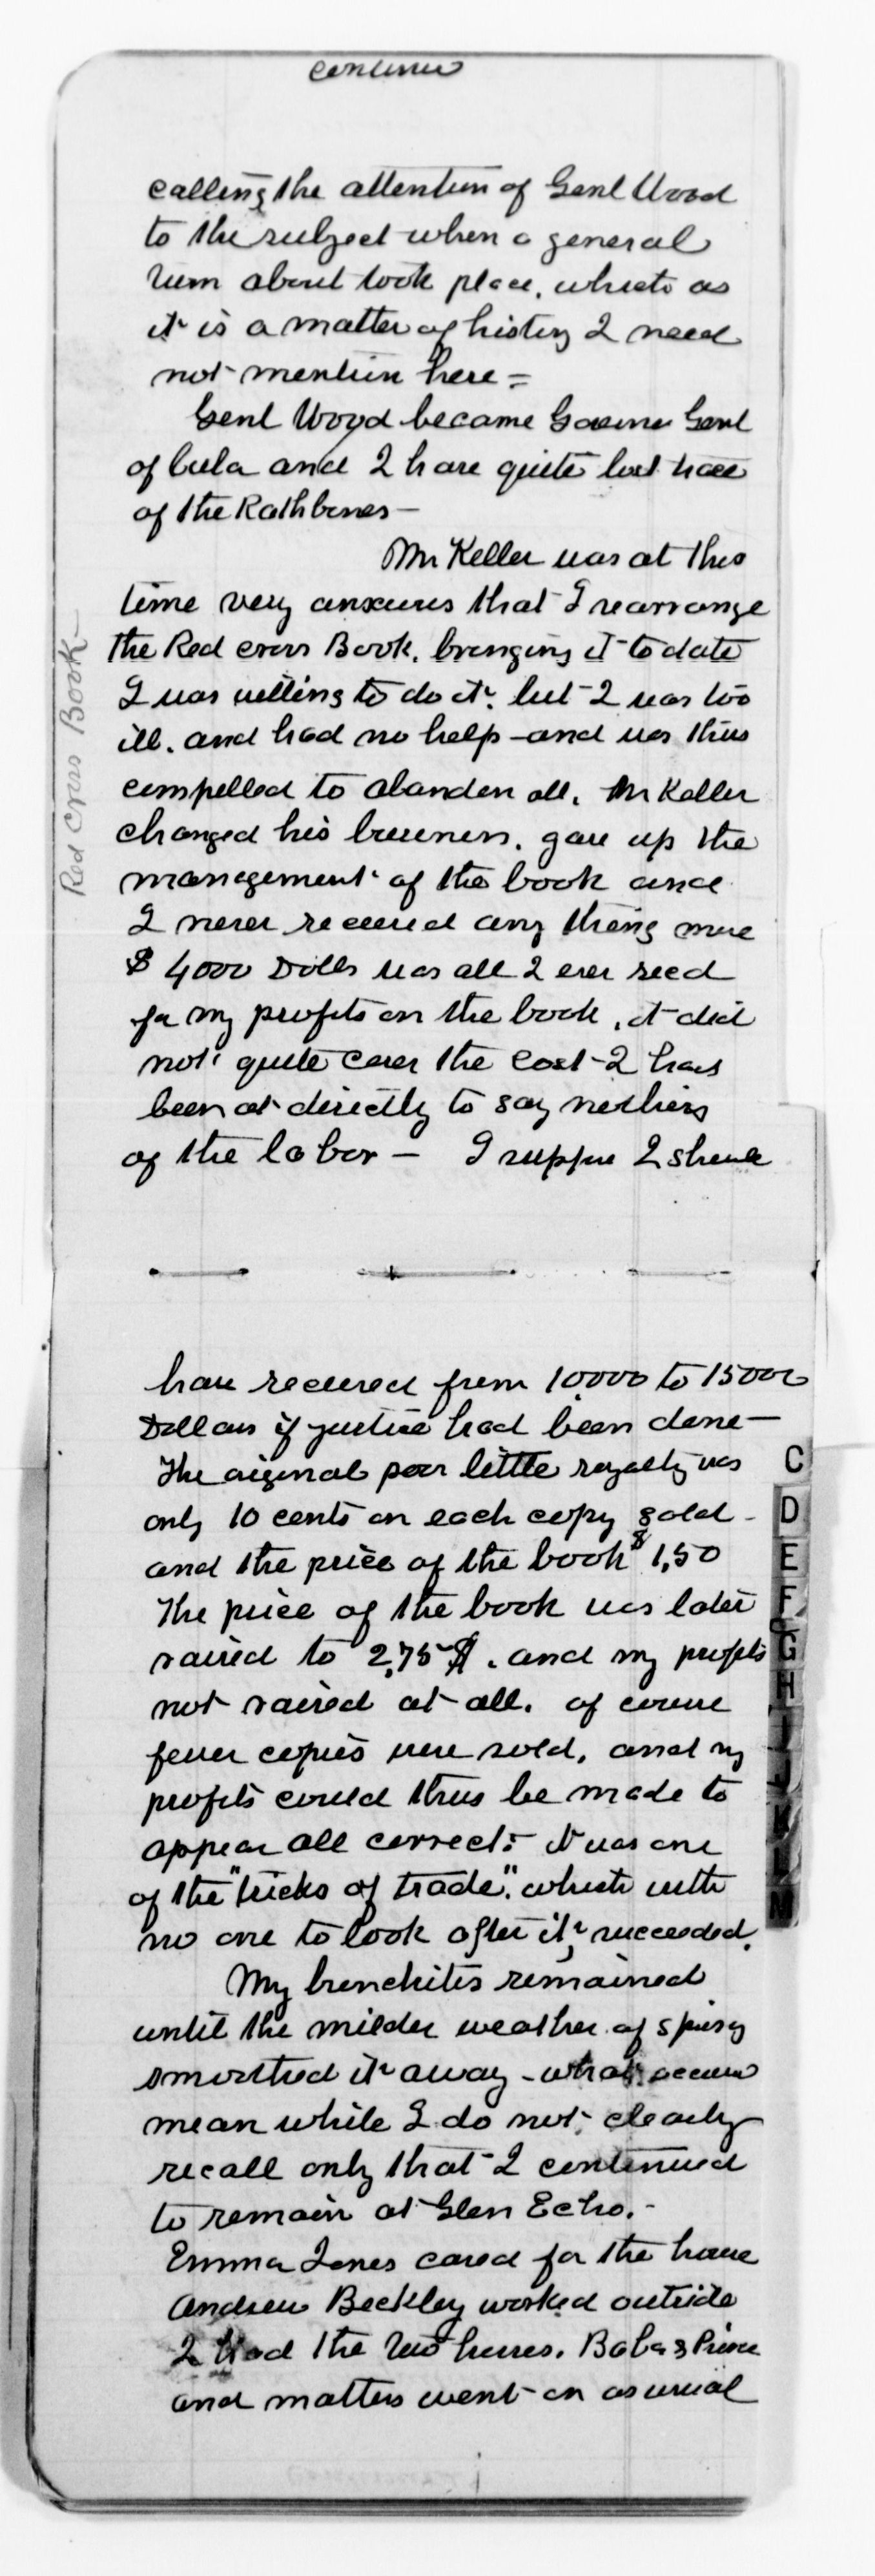 continu
calling the attention of Genl Wood
to the subject when a general
turn about took place, which as
it is a matter of history I need
not mention here =
Genl Wood became Governr Genl
of Cuba and I have quite lost trace
of the Rathbones —
Mr Keller was at this
time very anxious that I rearrange
the Red cross Book, bringing it to date
I was willing to do it, but I was too
ill, and had no help - and was thus
compelled to abandon all. Mr Keller
changed his business, gave up the
management of the book and
I never received any thing more
$ 4000 Dolls was all I ever recd
for my profits on the book, it did
not quite cover the cost I had
been at directly to say nothing
of the labor — I suppose I should
Red Cross Book —
have received from 10.000 to 15000
Dollars if justice had been done —
The original poor little royalty was
only 10 cents on each copy sold -
and the price of the book $ 1,50
The price of the book was later
raised to 2,75 $. and my profits
not raised at all. of course
fewer copies were sold, and my
profits could thus be made to
appear all correct: it was one
of the "tricks of trade". which with
no one to look after it, succeeded.
My bronchitis remained
until the milder weather of spring
smoothed it away - what occurred
mean while I do not clearly
recall only that I continued
to remain at Glen Echo. -
Emma Jones cared for the house
Andrew Beckley worked outside
I had the two horses. Baba & Prince
and matters went on as usual
C
D
E
F
G
H
I
J
K
L
M